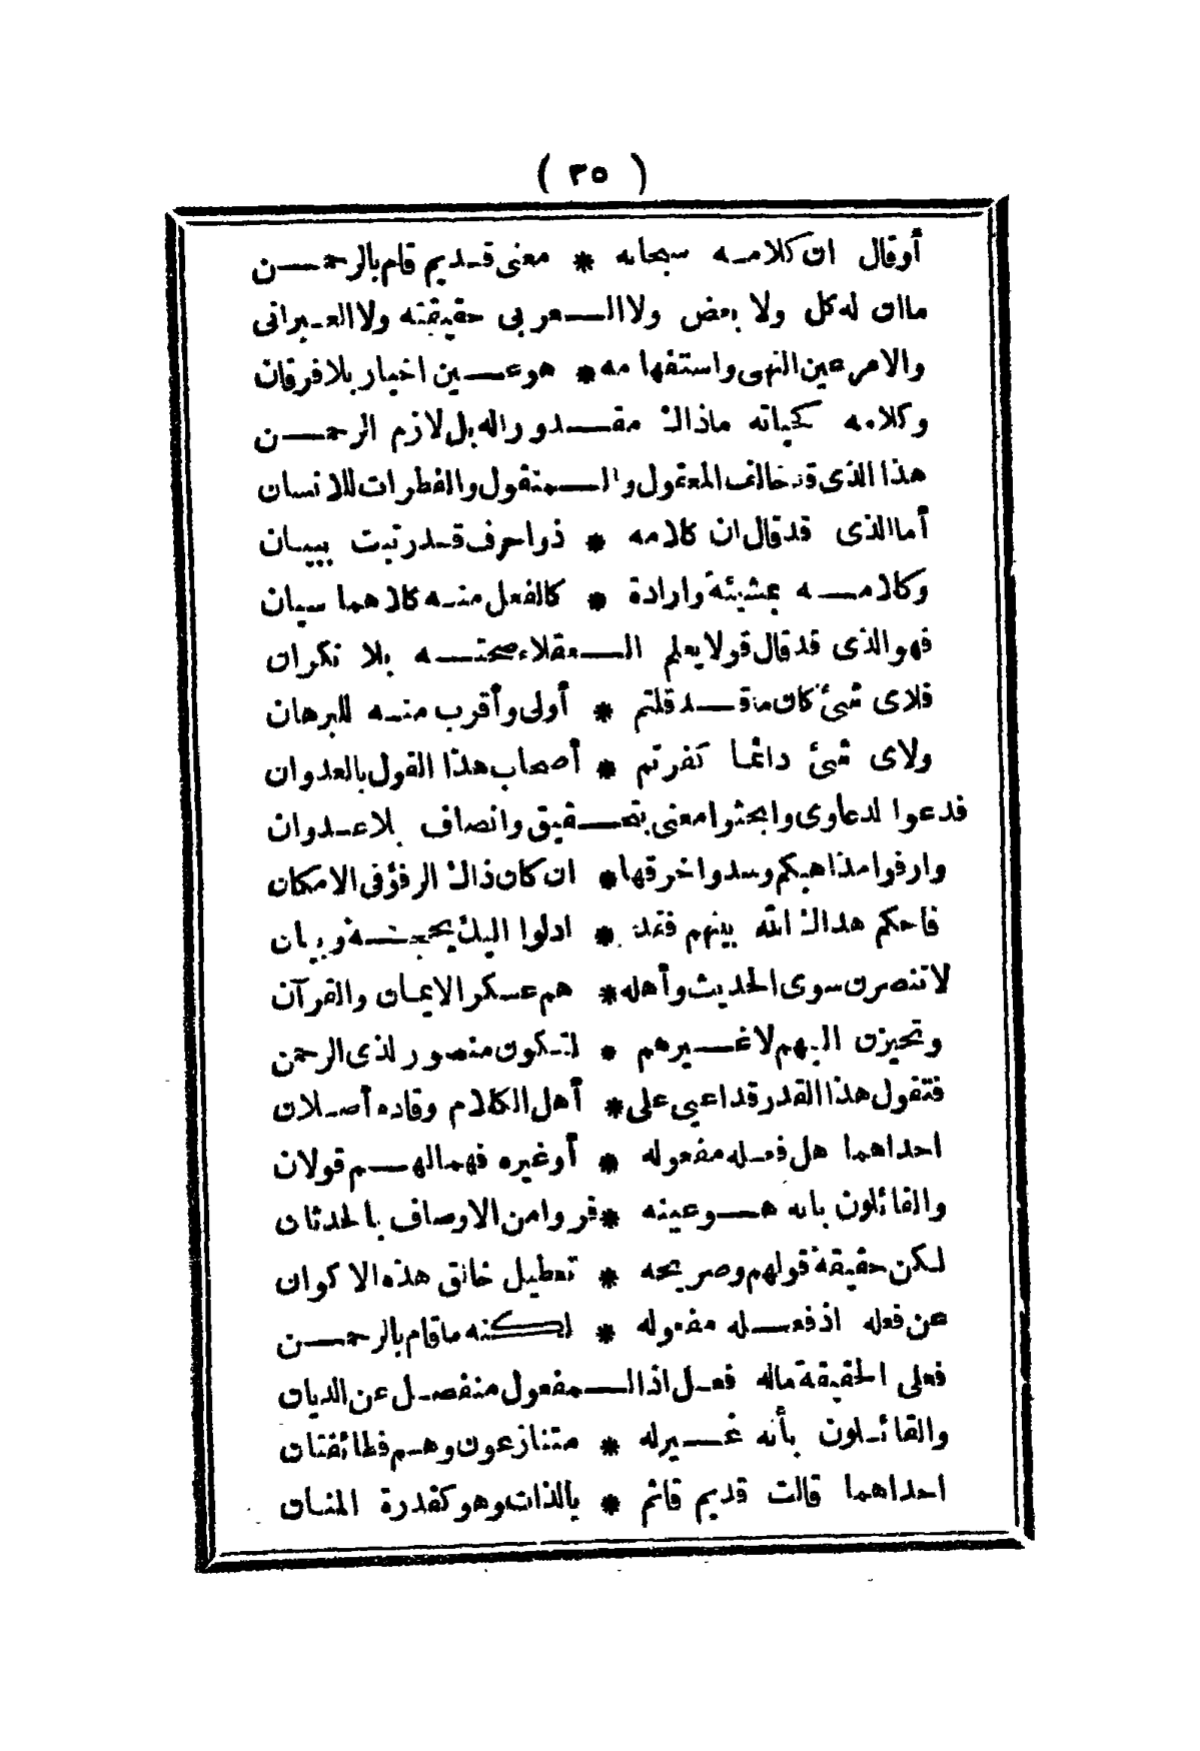 ( ٣٥ )
أوقال ان كلامه سبحانه * معنى قديم قام بالرحمن
ماان له كل ولا بعض ولاالعربى حقيقته ولاالعبرانى
والامر عين النهى واستفهامه * هو عين اخبار بلا فرقان
وكلامه كحياته ماذاك مقدوراله بل لازم الرحمن
هذا الذى قد خالف المعقول والمنقول والفطرات للانسان
أماالذى قد قال ان كلامه * ذواحرف قدرتبت ببيان
وكلامه بمشيئة وارادة * كالفعل منه كلاهما سيان
فهوالذى قد قال قولا يعلم العقلاء صحته بلا نكران
فلاى شئ كان ماقد قلتم * أولى وأقرب منه للبرهان
ولاى شئ دائما كفرتم * أصحاب هذا القول بالعدوان
فدعوا لدعاوى وابحثوا معنى بتحقيق وانصاف بلاعدوان
وارفوا مذاهبكم وسدوا خرقها * ان كان ذاك الرفوفى الامكان
فاحكم هداك الله بينهم فقد * ادلوا اليك بحجة وبيان
لاتنصرن سوى الحديث وأهله * هم عسكر الايمان والقرآن
وتحيزن اليهم لاغيرهم * لتكون منصورلذى الرحمن
فتقول هذا القدر قداعيى على * أهل الكلام وقاده أصلان
احداهما هل فعله مفعوله * أوغيره فهمالهم قولان
والقائلون بانه هو عينه * فروامن الاوصاف بالحدثان
لكن حقيقة قولهم وصريحه * تعطيل خالق هذه الاكوان
عن فعله اذفعله مفعوله * لكنه ماقام بالرحمن
فعلى الحقيقة ماله فعل اذالمفعول منفصل عن الديان
والقائلون بأنه غيرله * متنازعون وهم فطائفتان
احداهما قالت قديم قائم * بالذات وهو كقدرة المنان